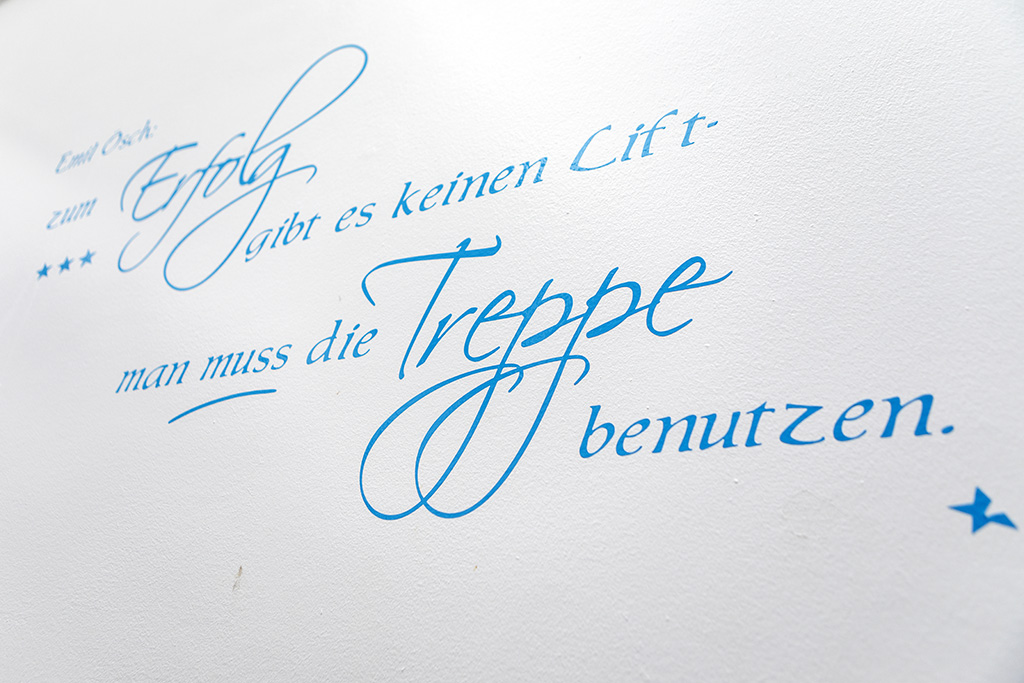 Emil Osch:
zum Erfolg
gibt es keinen Lift-
man muss die Treppe
benutzen.